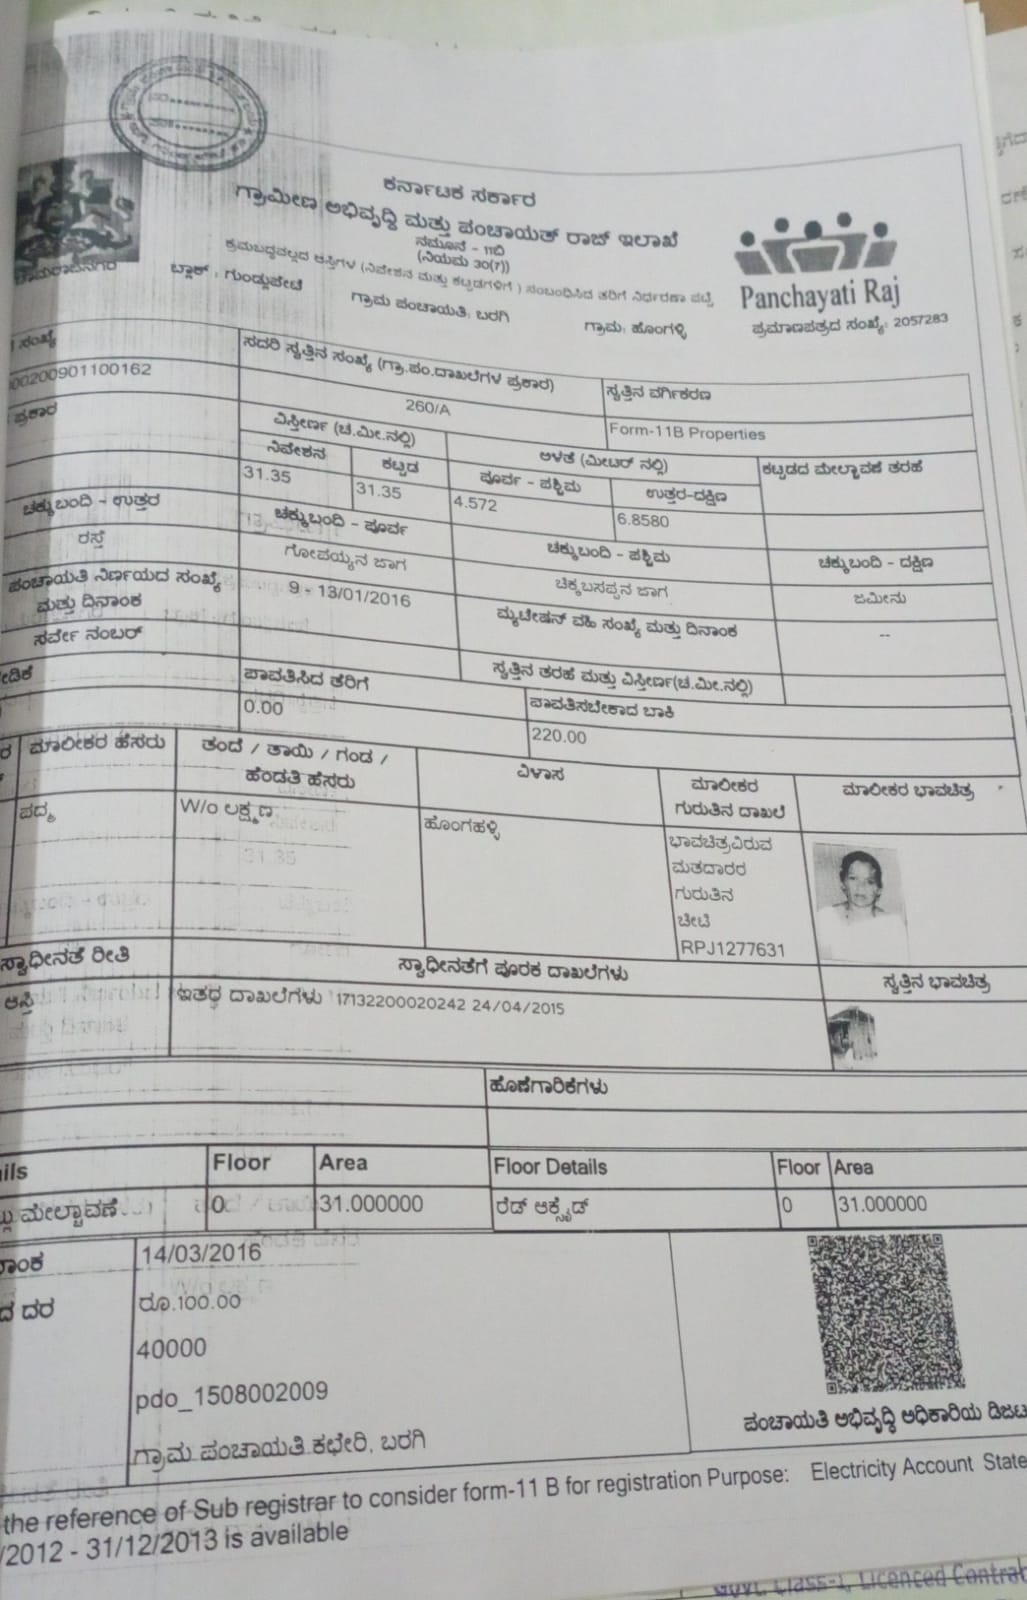 ಕರ್ನಾಟಕ ಸರ್ಕಾರ
ಗ್ರಾಮೀಣ ಅಭಿವೃದ್ಧಿ ಮತ್ತು ಪಂಚಾಯತ್ ರಾಜ್ ಇಲಾಖೆ
ನಮೂನೆ - 11ಬಿ
(ನಿಯಮ 30(7))
ಕ್ರಮಬದ್ಧವಲ್ಲದ ಆಸ್ತಿಗಳ (ನಿವೇಶನ ಮತ್ತು ಕಟ್ಟಡಗಳಿಗೆ ) ಸಂಬಂಧಿಸಿದ ತೆರಿಗೆ ನಿರ್ಧರಣಾ ಪಟ್ಟಿ
Panchayati Raj
ಚಾಮರಾಜನಗರ ಬ್ಲಾಕ್ : ಗುಂಡ್ಲುಪೇಟೆ ಗ್ರಾಮ ಪಂಚಾಯತಿ: ಬರಗಿ ಗ್ರಾಮ: ಹೊಂಗಳ್ಳಿ ಪ್ರಮಾಣಪತ್ರದ ಸಂಖ್ಯೆ: 2057283
ಸಂಖ್ಯೆ ಸದರಿ ಸ್ವತ್ತಿನ ಸಂಖ್ಯೆ (ಗ್ರಾ.ಪಂ.ದಾಖಲೆಗಳ ಪ್ರಕಾರ) ಸ್ವತ್ತಿನ ವರ್ಗಿಕರಣ
00200901100162 260/A Form-11B Properties
ಪ್ರಕಾರ ವಿಸ್ತೀರ್ಣ (ಚ.ಮೀ.ನಲ್ಲಿ) ಅಳತೆ (ಮೀಟರ್ ನಲ್ಲಿ) ಕಟ್ಟಡದ ಮೇಲ್ಚಾವಣಿ ತರಹೆ
ನಿವೇಶನ ಕಟ್ಟಡ ಪೂರ್ವ - ಪಶ್ಚಿಮ ಉತ್ತರ-ದಕ್ಷಿಣ
31.35 31.35 4.572 6.8580
ಚಕ್ಕುಬಂದಿ - ಉತ್ತರ ಚಕ್ಕುಬಂದಿ - ಪೂರ್ವ ಚಕ್ಕುಬಂದಿ - ಪಶ್ಚಿಮ ಚಕ್ಕುಬಂದಿ - ದಕ್ಷಿಣ
ರಸ್ತೆ ಗೋಪಯ್ಯನ ಜಾಗ ಚಿಕ್ಕಬಸಪ್ಪನ ಜಾಗ ಜಮೀನು
ಪಂಚಾಯತಿ ನಿರ್ಣಯದ ಸಂಖ್ಯೆ ಮತ್ತು ದಿನಾಂಕ 9 - 13/01/2016 ಮ್ಯುಟೇಷನ್ ವಹಿ ಸಂಖ್ಯೆ ಮತ್ತು ದಿನಾಂಕ --
ಸರ್ವೇ ನಂಬರ್ ಸ್ವತ್ತಿನ ತರಹೆ ಮತ್ತು ವಿಸ್ತೀರ್ಣ(ಚ.ಮೀ.ನಲ್ಲಿ)
ಪಾವತಿಸಿದ ತೆರಿಗೆ ಪಾವತಿಸಬೇಕಾದ ಬಾಕಿ
0.00 220.00
ಮಾಲೀಕರ ಹೆಸರು ತಂದೆ / ತಾಯಿ / ಗಂಡ / ಹೆಂಡತಿ ಹೆಸರು ವಿಳಾಸ ಮಾಲೀಕರ ಗುರುತಿನ ದಾಖಲೆ ಮಾಲೀಕರ ಭಾವಚಿತ್ರ
ಪದ್ಮ W/o ಲಕ್ಷ್ಮಣ ಹೊಂಗಹಳ್ಳಿ ಭಾವಚಿತ್ರವಿರುವ
ಮತದಾರರ
ಗುರುತಿನ
ಚೀಟಿ
RPJ1277631
ಸ್ವಾಧೀನತೆ ರೀತಿ ಸ್ವಾಧೀನತೆಗೆ ಪೂರಕ ದಾಖಲೆಗಳು ಸ್ವತ್ತಿನ ಭಾವಚಿತ್ರ
ಆಸ್ತಿ ಇತರೆ ದಾಖಲೆಗಳು 17132200020242 24/04/2015
ಹೊಣೆಗಾರಿಕೆಗಳು
ils Floor Area Floor Details Floor Area
ಮೇಲ್ಚಾವಣೆ 0 31.000000 ರೆಡ್ ಆಕ್ಸೈಡ್ 0 31.000000
14/03/2016
ದರ ರೂ.100.00
40000
pdo_1508002009
ಗ್ರಾಮ ಪಂಚಾಯತಿ ಕಛೇರಿ, ಬರಗಿ
ಪಂಚಾಯತಿ ಅಭಿವೃದ್ಧಿ ಅಧಿಕಾರಿಯ ಡಿಜಿಟ
the reference of Sub registrar to consider form-11 B for registration Purpose: Electricity Account State
/2012 - 31/12/2013 is available
Govt. Class-1, Licenced Contrat